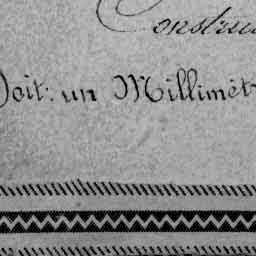 Constru
Doit: un Millimèt